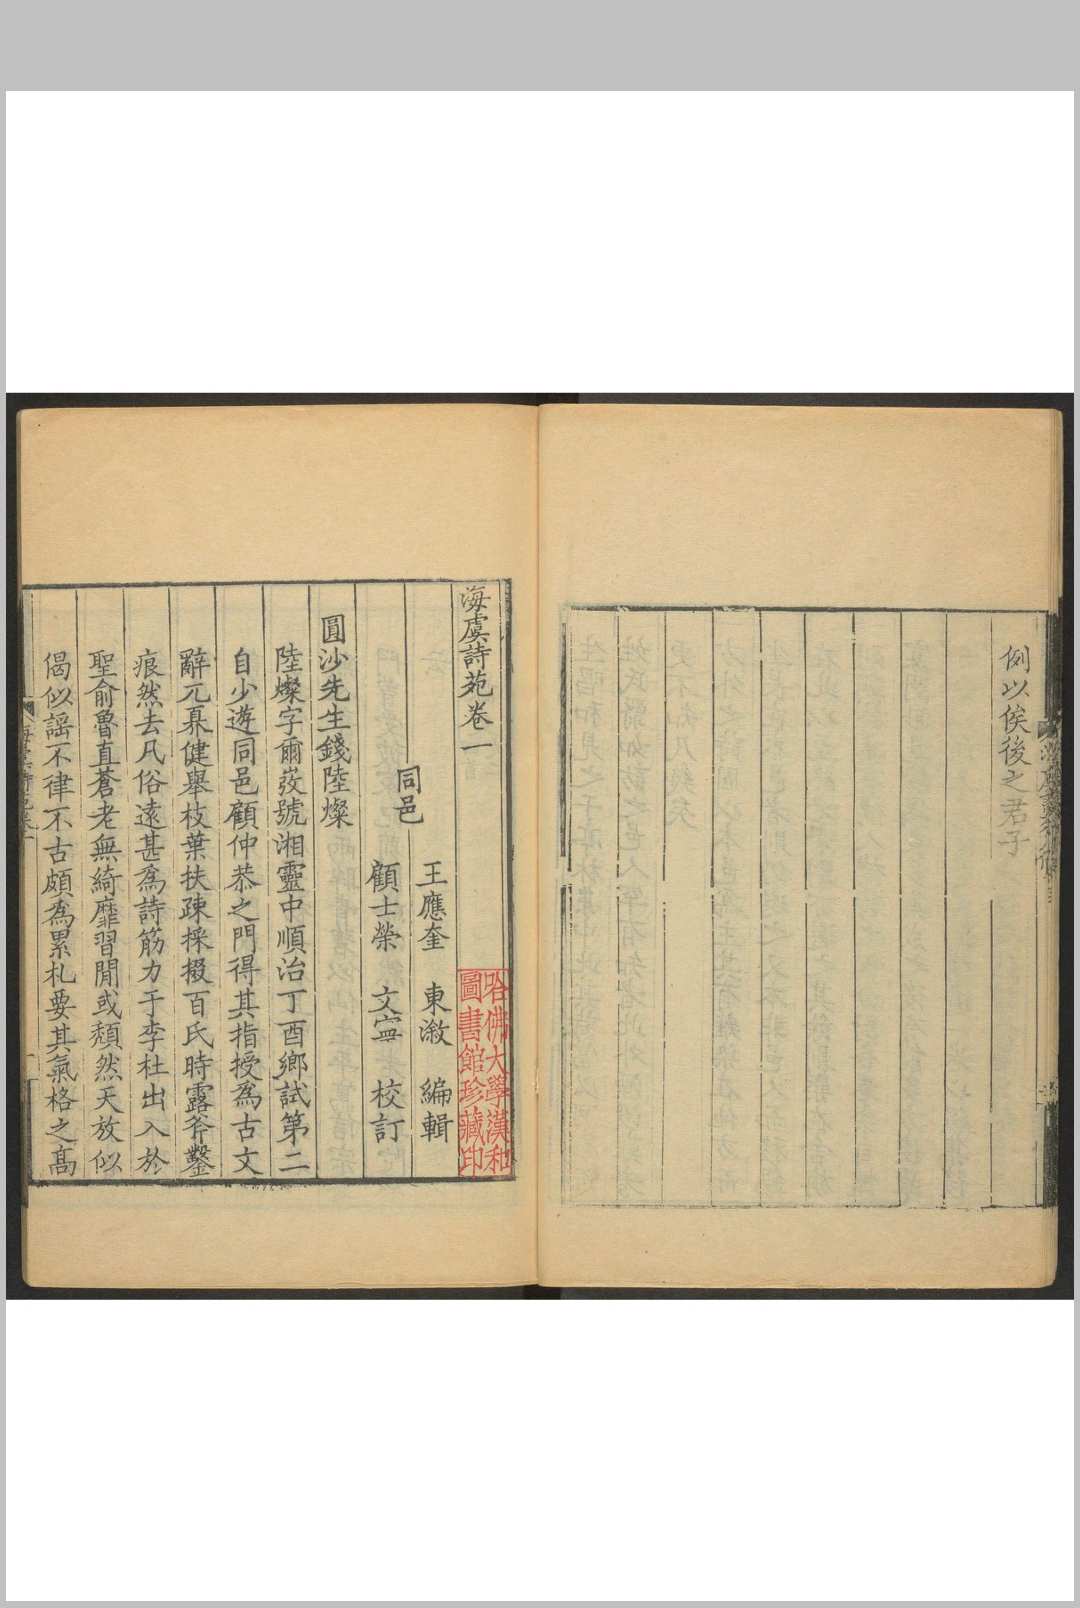 例以俟後之君子
海虞詩苑卷一
哈佛大學漢和
圖書館珍藏印
同邑
王應奎 東漵 編輯
顧士榮 文寧 校訂
圓沙先生錢陸燦
陸燦字爾弢號湘靈中順治丁酉鄉試第二
自少遊同邑顧仲恭之門得其指授爲古文
辭兀臬健舉枝葉扶踈採掇百氏時露斧鑿
痕然去凡俗遠甚爲詩筋力于李杜出入於
聖俞魯直蒼老無綺靡習閒或頹然天放似
偈似謡不律不古頗爲累札要其氣格之高